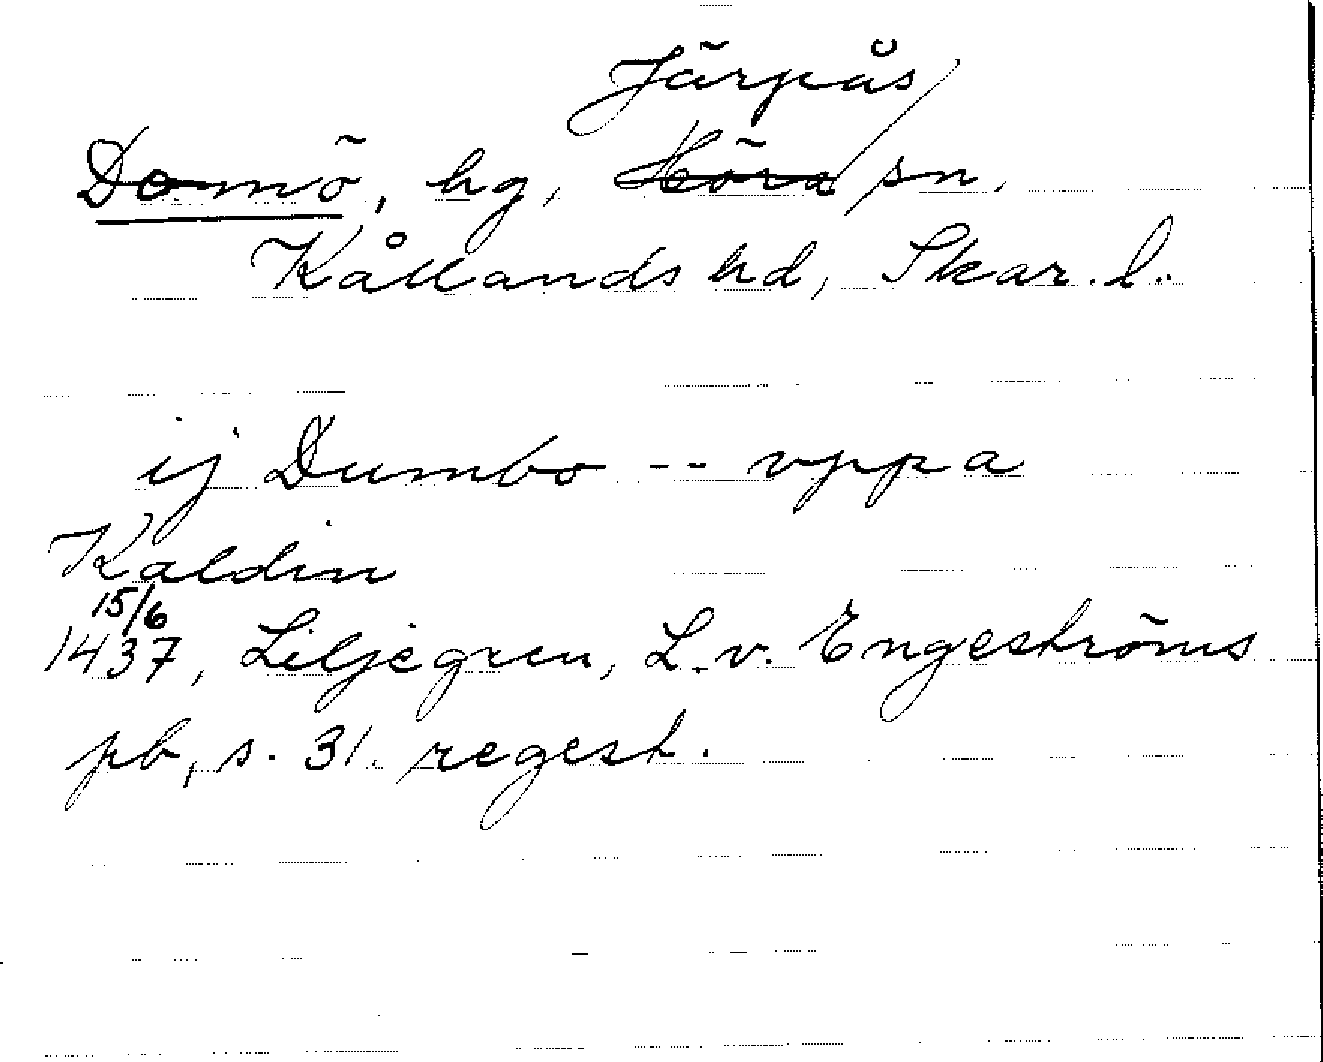 Järpås
Domö, hg, Höra sn.
Kållands hd, Skar. l.
ij Dumbo -- vppa
Kaldin
15/6
1437, Liljegren, L. v. Engeströms
pb, s. 31. regest.